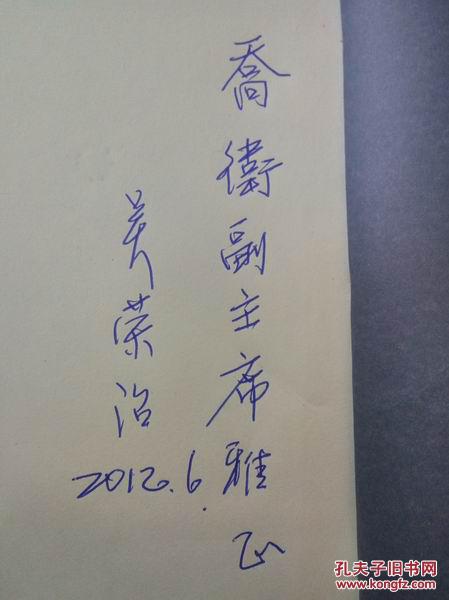 喬衛副主席雅正
吴荣治
2012.6.
孔夫子旧书网
www.kongfz.com